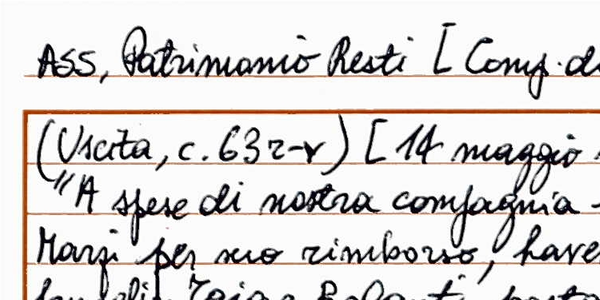 ASS, Patrimonio Resti [ Comp. di
(Uscita, c. 63r-v) [ 14 maggio
"A spese di nostra compagnia
Marzi per suo rimborso, have